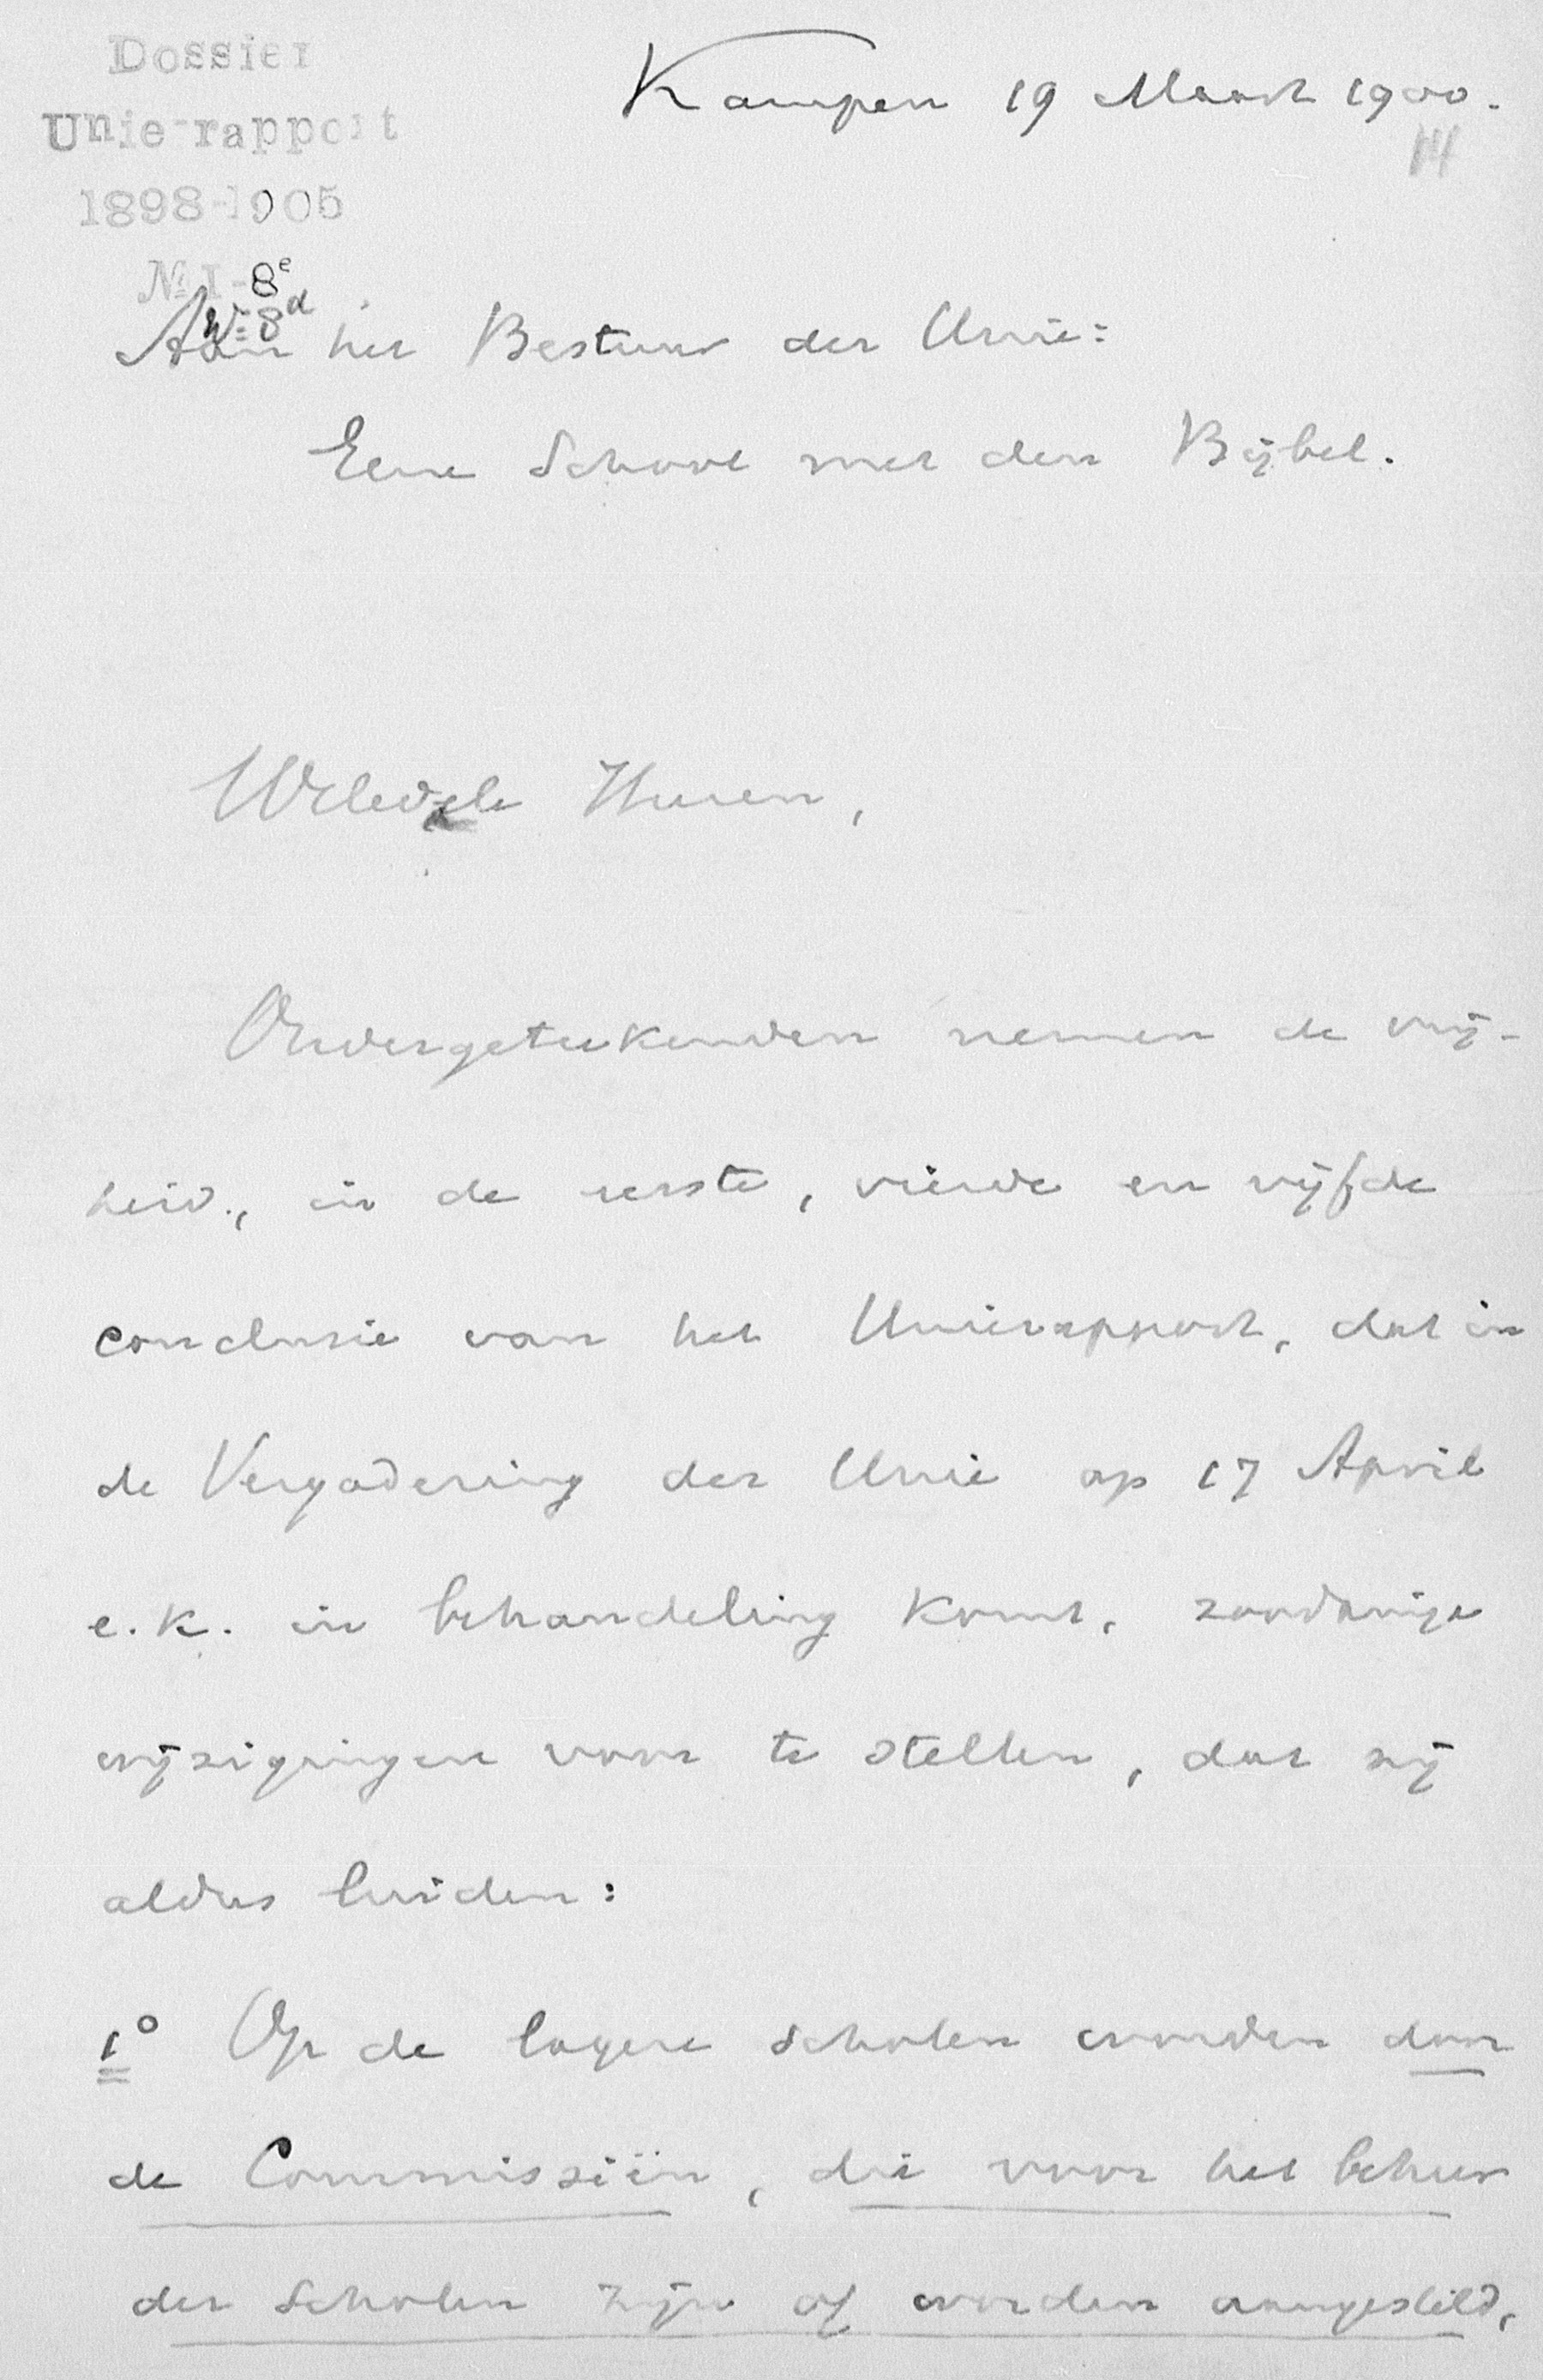 Dossier
Unie-rapport
1898-1905
№ I-8e
№ 8d
Kampen 19 Maart 1900.
14
Aan het Bestuur der Unie:
Eene School met den Bijbel.
WelEdele Heeren,
Ondergeteekenden nemen de vrij-
heid, in de eerste, vierde en vijfde
conclusie van het Unierapport, dat in
de Vergadering der Unie op 17 April
e.k. in behandeling komt, zoodanige
wijzigingen voor te stellen, dat zij
aldus luiden:
1o Op de lagere scholen worden door
de Commissiën, die voor het beheer
der Scholen zijn of worden aangesteld,